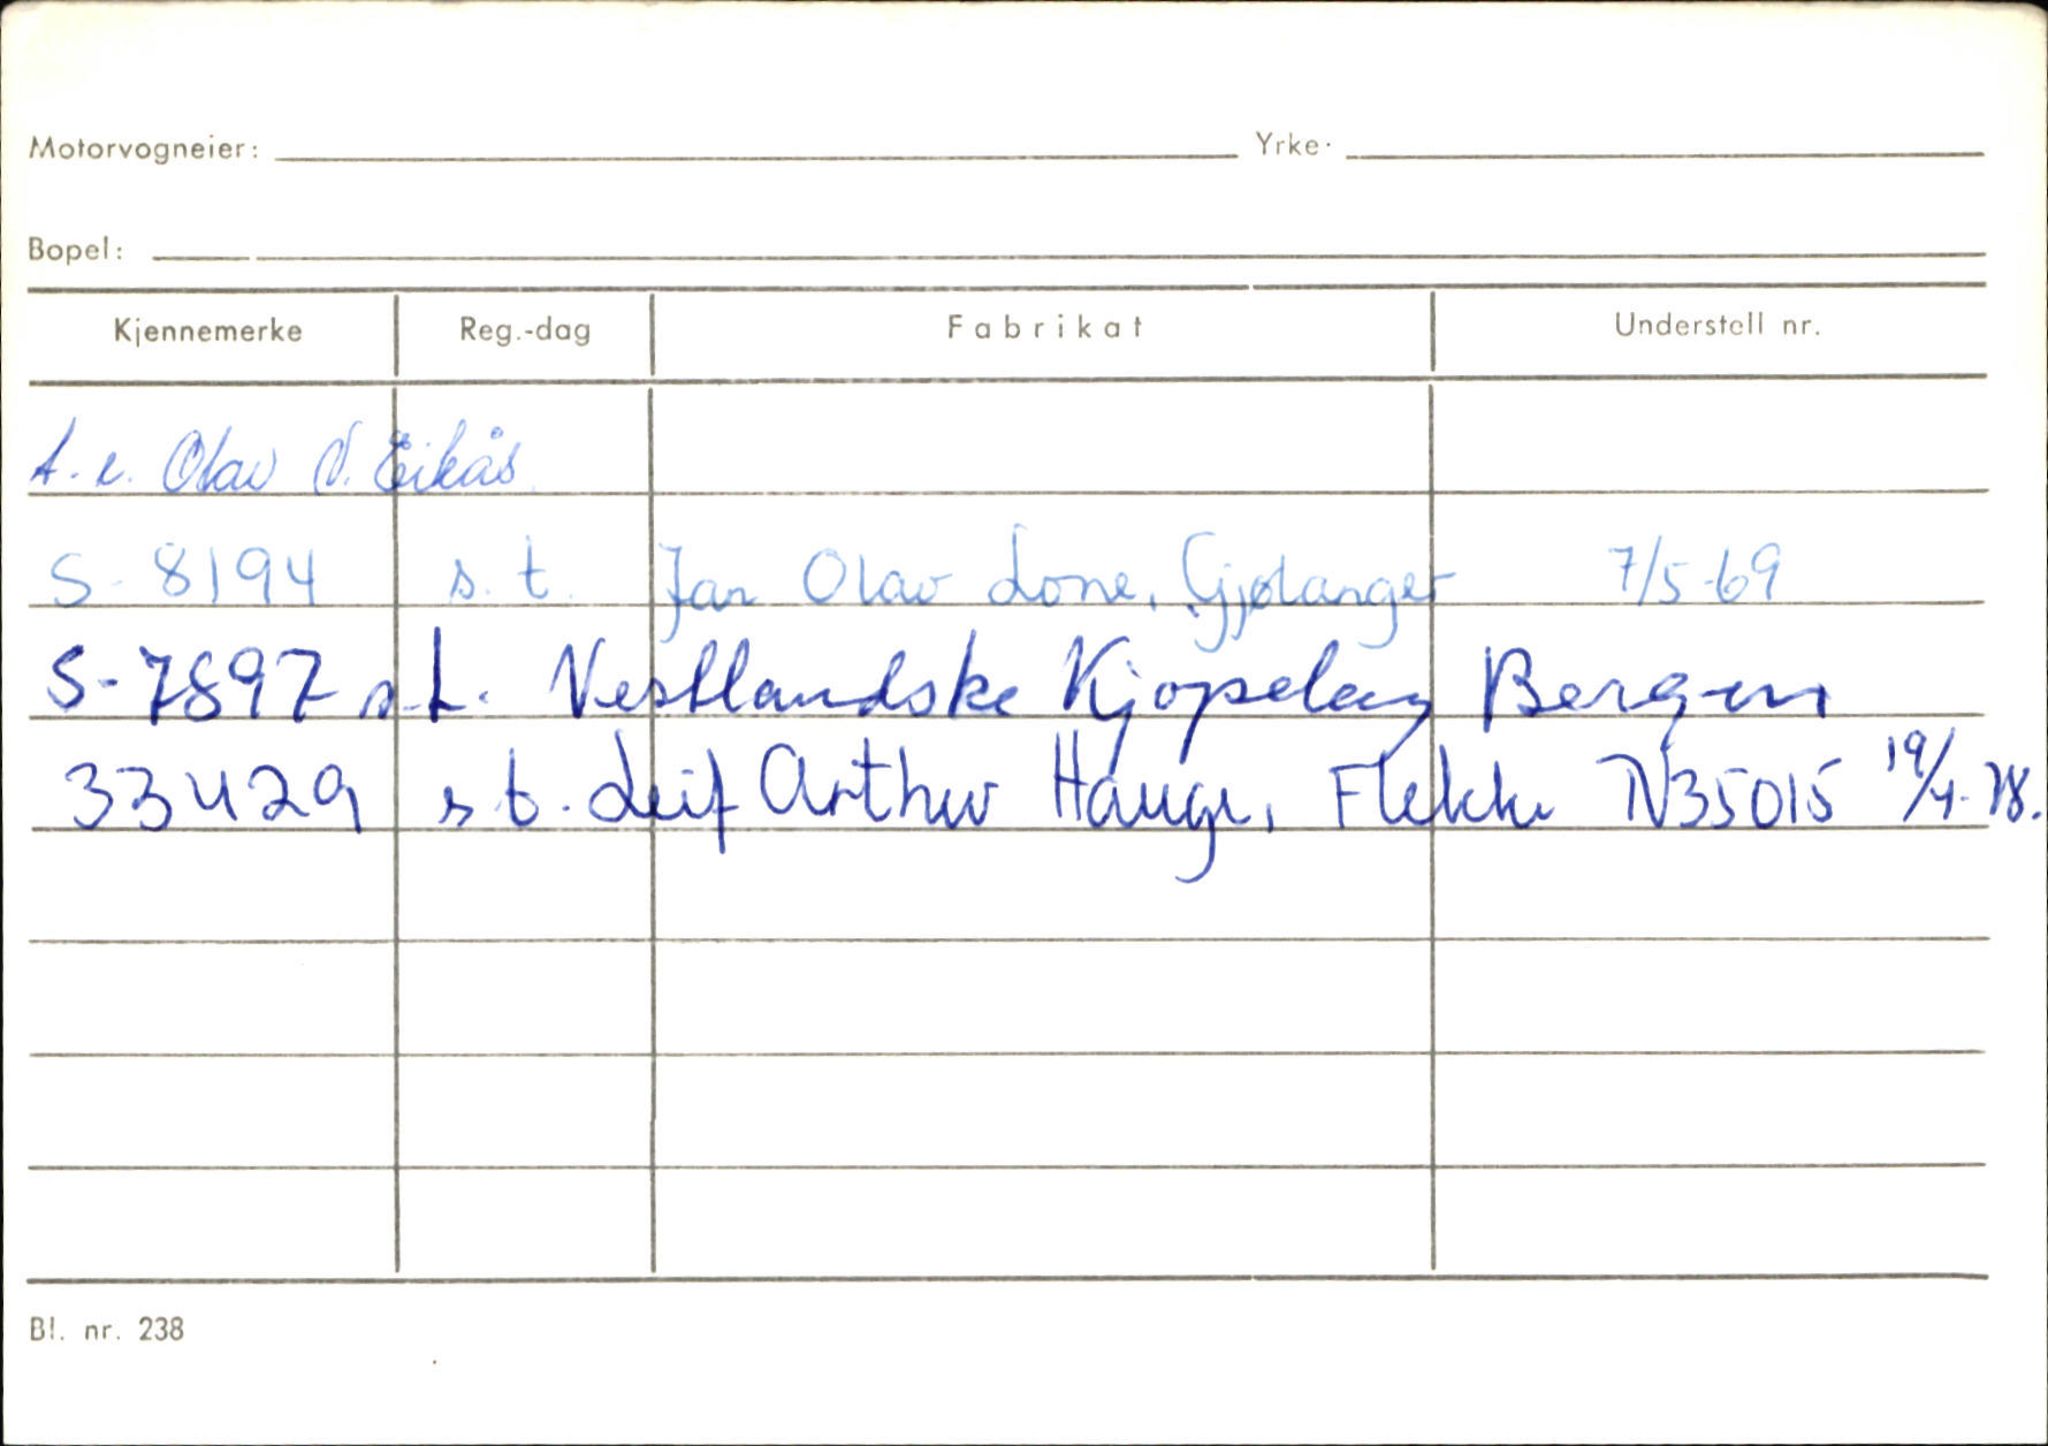 Motorvogneier: Yrke.
Bopel:
Kjennemerke Reg.-dag Fabrikat Understell nr.
t.e. Olav V. Eikås
S-8194 s.t. Jan Olav Lone, Gjølanger 7/5-69
S-7897 s.t. Vestlandske Kjøpelag Bergen
33429 s.t. Leif Arthur Hauge, Flekke N35015 19/4-78.
Bl. nr. 238